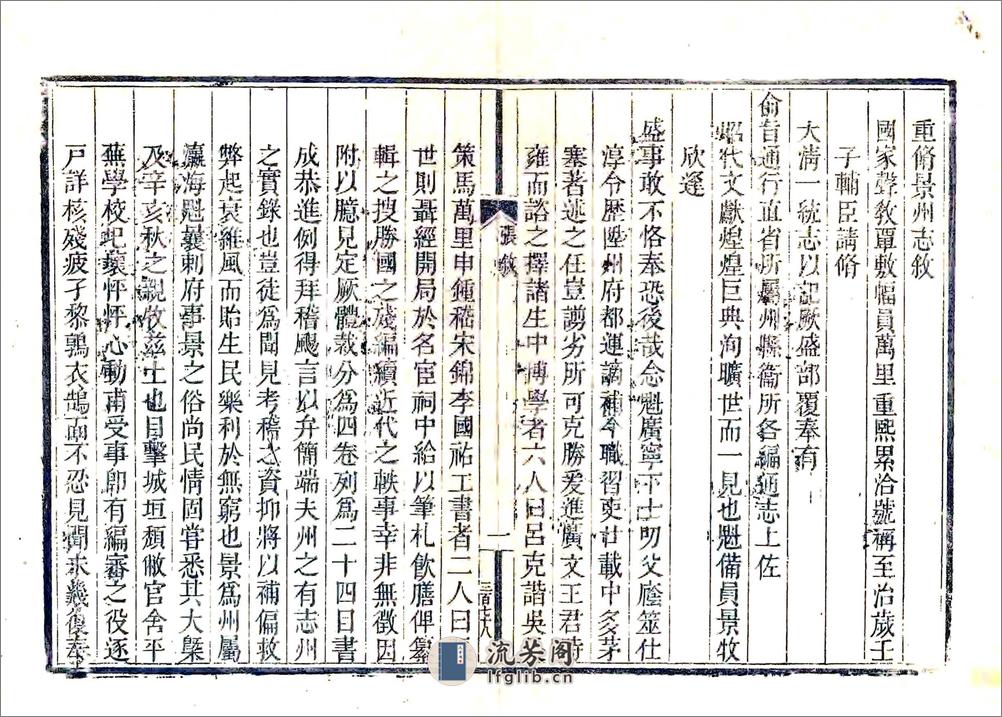 重脩景州志敘
國家聲敎覃敷幅員萬里重熙累洽號稱至治歲壬
子輔臣請脩
大淸一統志以記厥盛部覆奉有
俞旨通行直省所屬州縣衞所各編通志上佐
昭代文獻煌煌巨典洵曠世而一見也魁備員景牧
欣逢
盛事敢不恪奉恐後哉念魁廣寧下士叨父廕筮仕
淳令歷陞州府都運謫補今職習吏廿載中多茅
塞著述之任豈謭劣所可克勝爰進廣文王君時
雍而諮之擇諸生中博學者六人曰呂克諧吳
張敘
一
三百七八
策馬萬里申鍾嵇宋錦李國祐工書者二人曰
世則聶經開局於名宦祠中給以筆札飮膳俾纂
輯之搜勝國之殘編續近代之軼事幸非無徵因
附以臆見定厥體裁分爲四卷列爲二十四目書
成恭進例得拜稽颺言以弁簡端夫州之有志州
之實錄也豈徒爲聞見考稽之資抑將以補偏救
弊起衰維風而貽生民樂利於無窮也景爲州屬
瀛海魁曩剌府事景之俗尚民情固嘗悉其大槩
及辛亥秋之親牧茲土也目擊城垣頹敝官舍平
蕪學校圮壞怦怦心動甫受事卽有編審之役逐
戶詳核殘疲子黎鶉衣鵠面不忍見聞未幾復奉
流芳阁
lfglib.cn